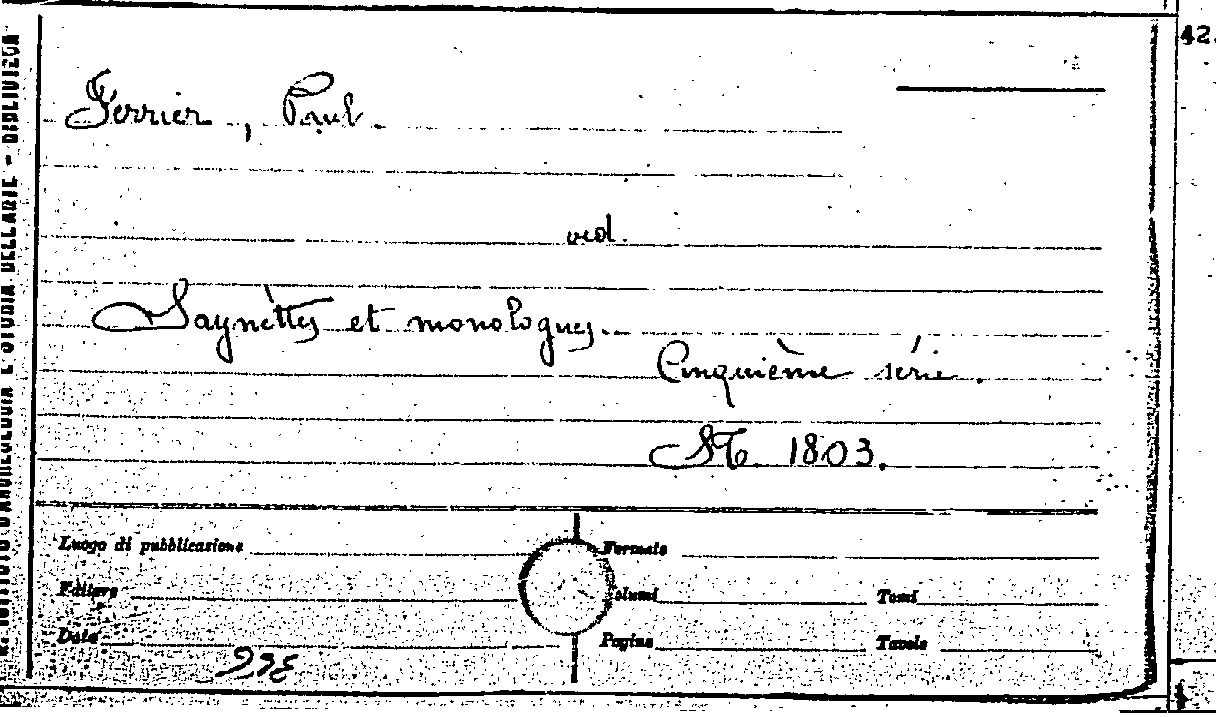 42.
Ferrier, Paul.
ved.
Saynètes et monologues.
Cinquième série.
ST. 1803.
Luogo di pubblicazione
Formato
Editore
Volumi
Tomi
Data
Pagine
Tavole
R. ISTITUTO D'ARCHEOLOGIA E STORIA DELL'ARTE - BIBLIOTECA